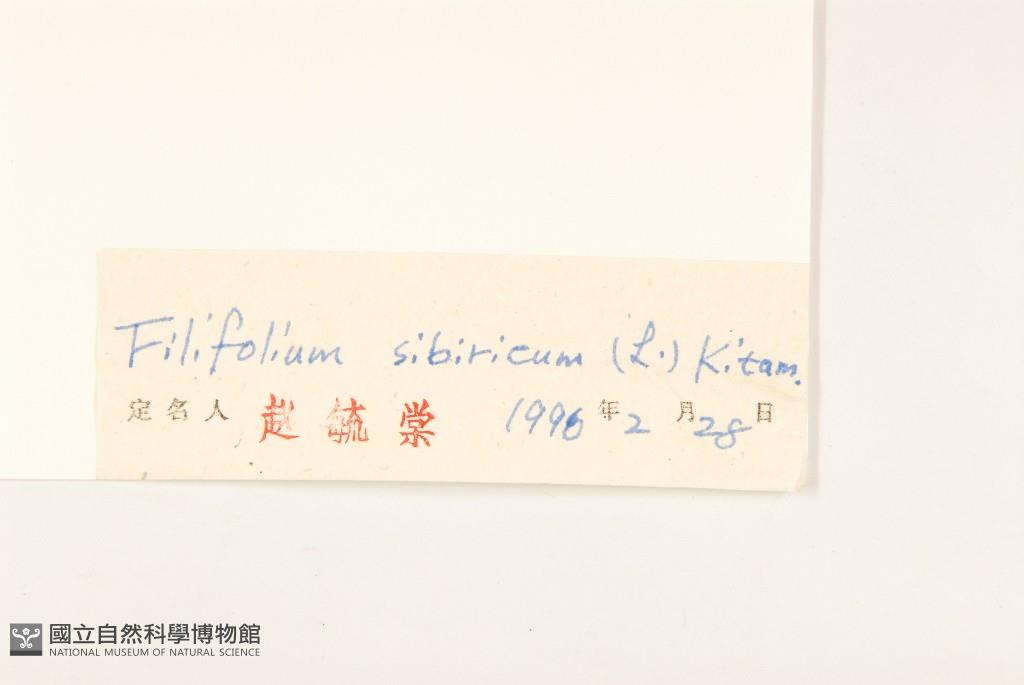 Filifolium sibiricum (L.) Kitam.
定名人 赵毓棠 1996年2月28日
國立自然科學博物館
NATIONAL MUSEUM OF NATURAL SCIENCE